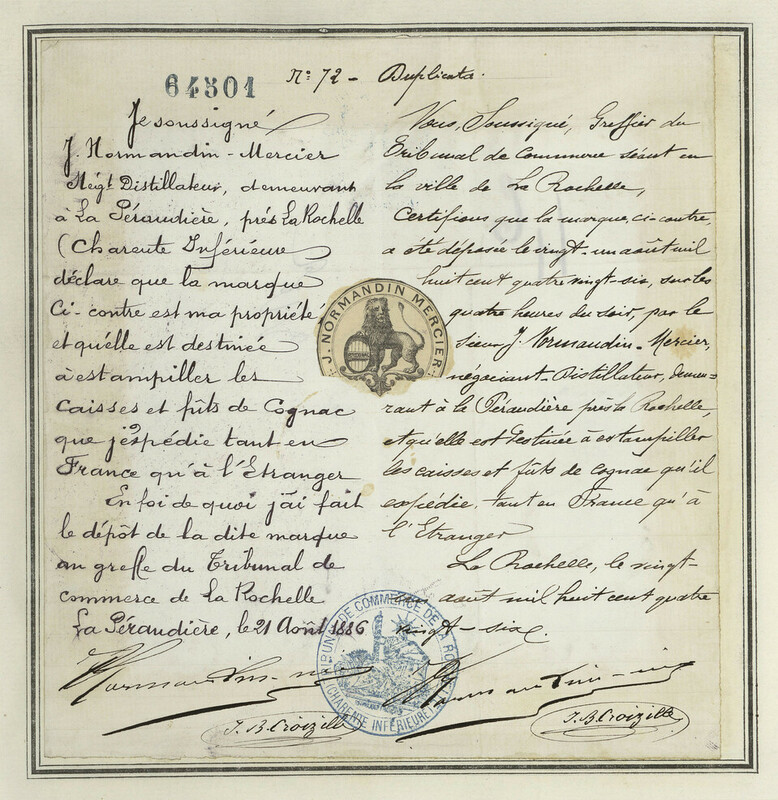 64501
N° 72 - Duplicata.
Je soussigné
J. Normandin-Mercier
Négt. Distillateur, demeurant
à La Péraudière, près La Rochelle
(Charente Inférieure
déclare que la marque
Ci-contre est ma propriété
et qu'elle est destinée
à estampiller les
caisses et fûts de Cognac
que j'espédie tant en
France qu'à l'Etranger
En foi de quoi j'ai fait
le dépôt de la dite marque
au greffe du Tribunal de
commerce de La Rochelle
La Péraudière, le 21 Août 1886
J. B. Croizille
J. NORMANDIN MERCIER
Nous, Soussigné, Greffier du
Tribunal de Commerce séant en
la ville de La Rochelle,
Certifions que la marque, ci-contre,
a été déposée le vingt-un août mil
huit cent quatre vingt-six, sur les
quatre heures du soir, par le
sieur J. Normandin-Mercier,
négociant-Distillateur, demeu-
rant à la Péraudière près la Rochelle,
et qu'elle est Destinée à estampiller
les caisses et fûts de cognac qu'il
expédie, tant en France qu'à
l'Etranger
La Rochelle, le vingt-
août mil huit cent quatre
vingt-six.
J. B. Croizille
TRIBUNAL DE COMMERCE DE LA ROCHELLE
(CHARENTE INFÉRIEURE)